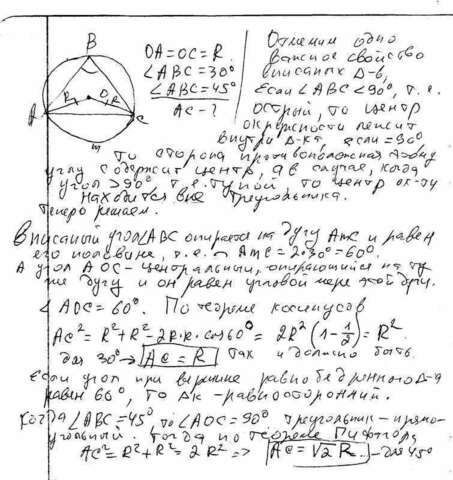 B
A
C
R
O
R
m
OA=OC=R
∠ABC=30°
∠ABC=45°
AC-?
Отметим одно
важное свойство
вписаных Δ-в,
если ∠ABC<90°, т.е.
острый, то центр
окружности лежит
внутри Δ-ка, если =90°
То сторона противоположная этому
углу содержит центр, а в случае, когда
угол >90° т.е. тупой то центр ок-ти
находится вне треугольника.
Теперь решаем.
Вписаный угол ∠ABC опирается на дугу AmC и равен
его половине, т.е. AmC = 2·30°=60°.
А угол AOC - центральный, опирающийся на ту
же дугу и он равен угловой мере этой дуги.
∠AOC=60°. По теореме косинусов
AC²=R²+R²-2R·R·cos60°=2R²(1-1/2)=R²
для 30°→ AC=R Так и должно быть.
Если угол при вершине равнобедренного Δ-а
равен 60°, то Δк -равносторонний.
Когда ∠ABC=45°, то ∠AOC=90° треугольник-прямо-
угольный. Тогда по теореме Пифагора
AC²=R²+R²=2R² => AC=√2 R. -для 45°